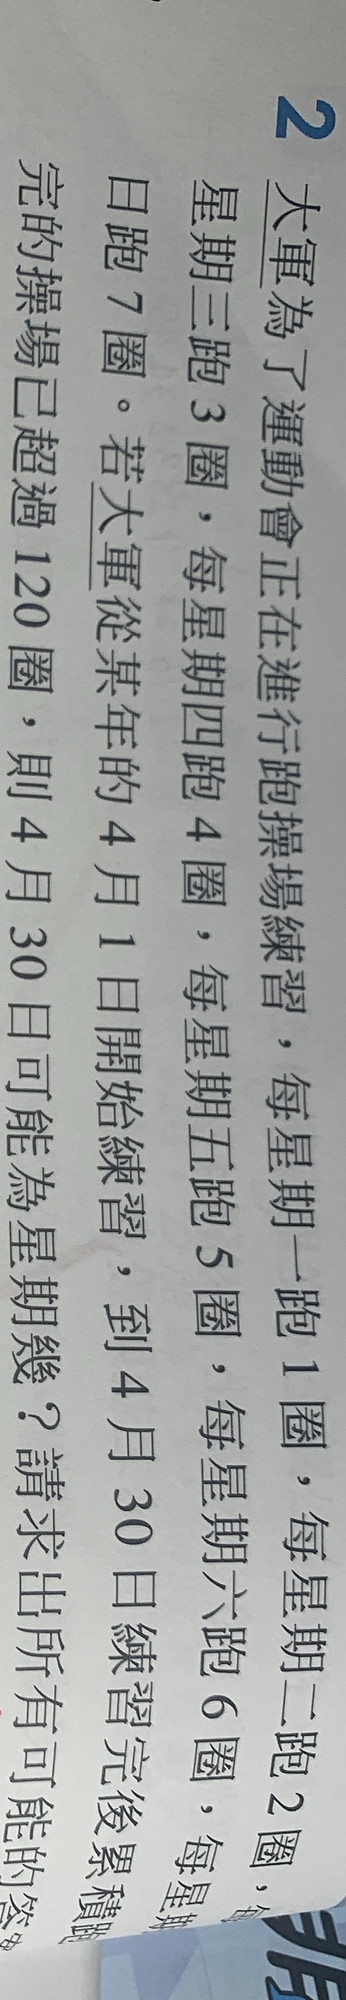 2 大軍為了運動會正在進行跑操場練習，每星期一跑 1 圈，每星期二跑 2 圈，每
星期三跑 3 圈，每星期四跑 4 圈，每星期五跑 5 圈，每星期六跑 6 圈，每星期
日跑 7 圈。若大軍從某年的 4 月 1 日開始練習，到 4 月 30 日練習完後累積跑
完的操場已超過 120 圈，則 4 月 30 日可能為星期幾？請求出所有可能的答